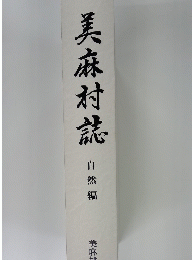 美麻村誌
自然編
美麻村